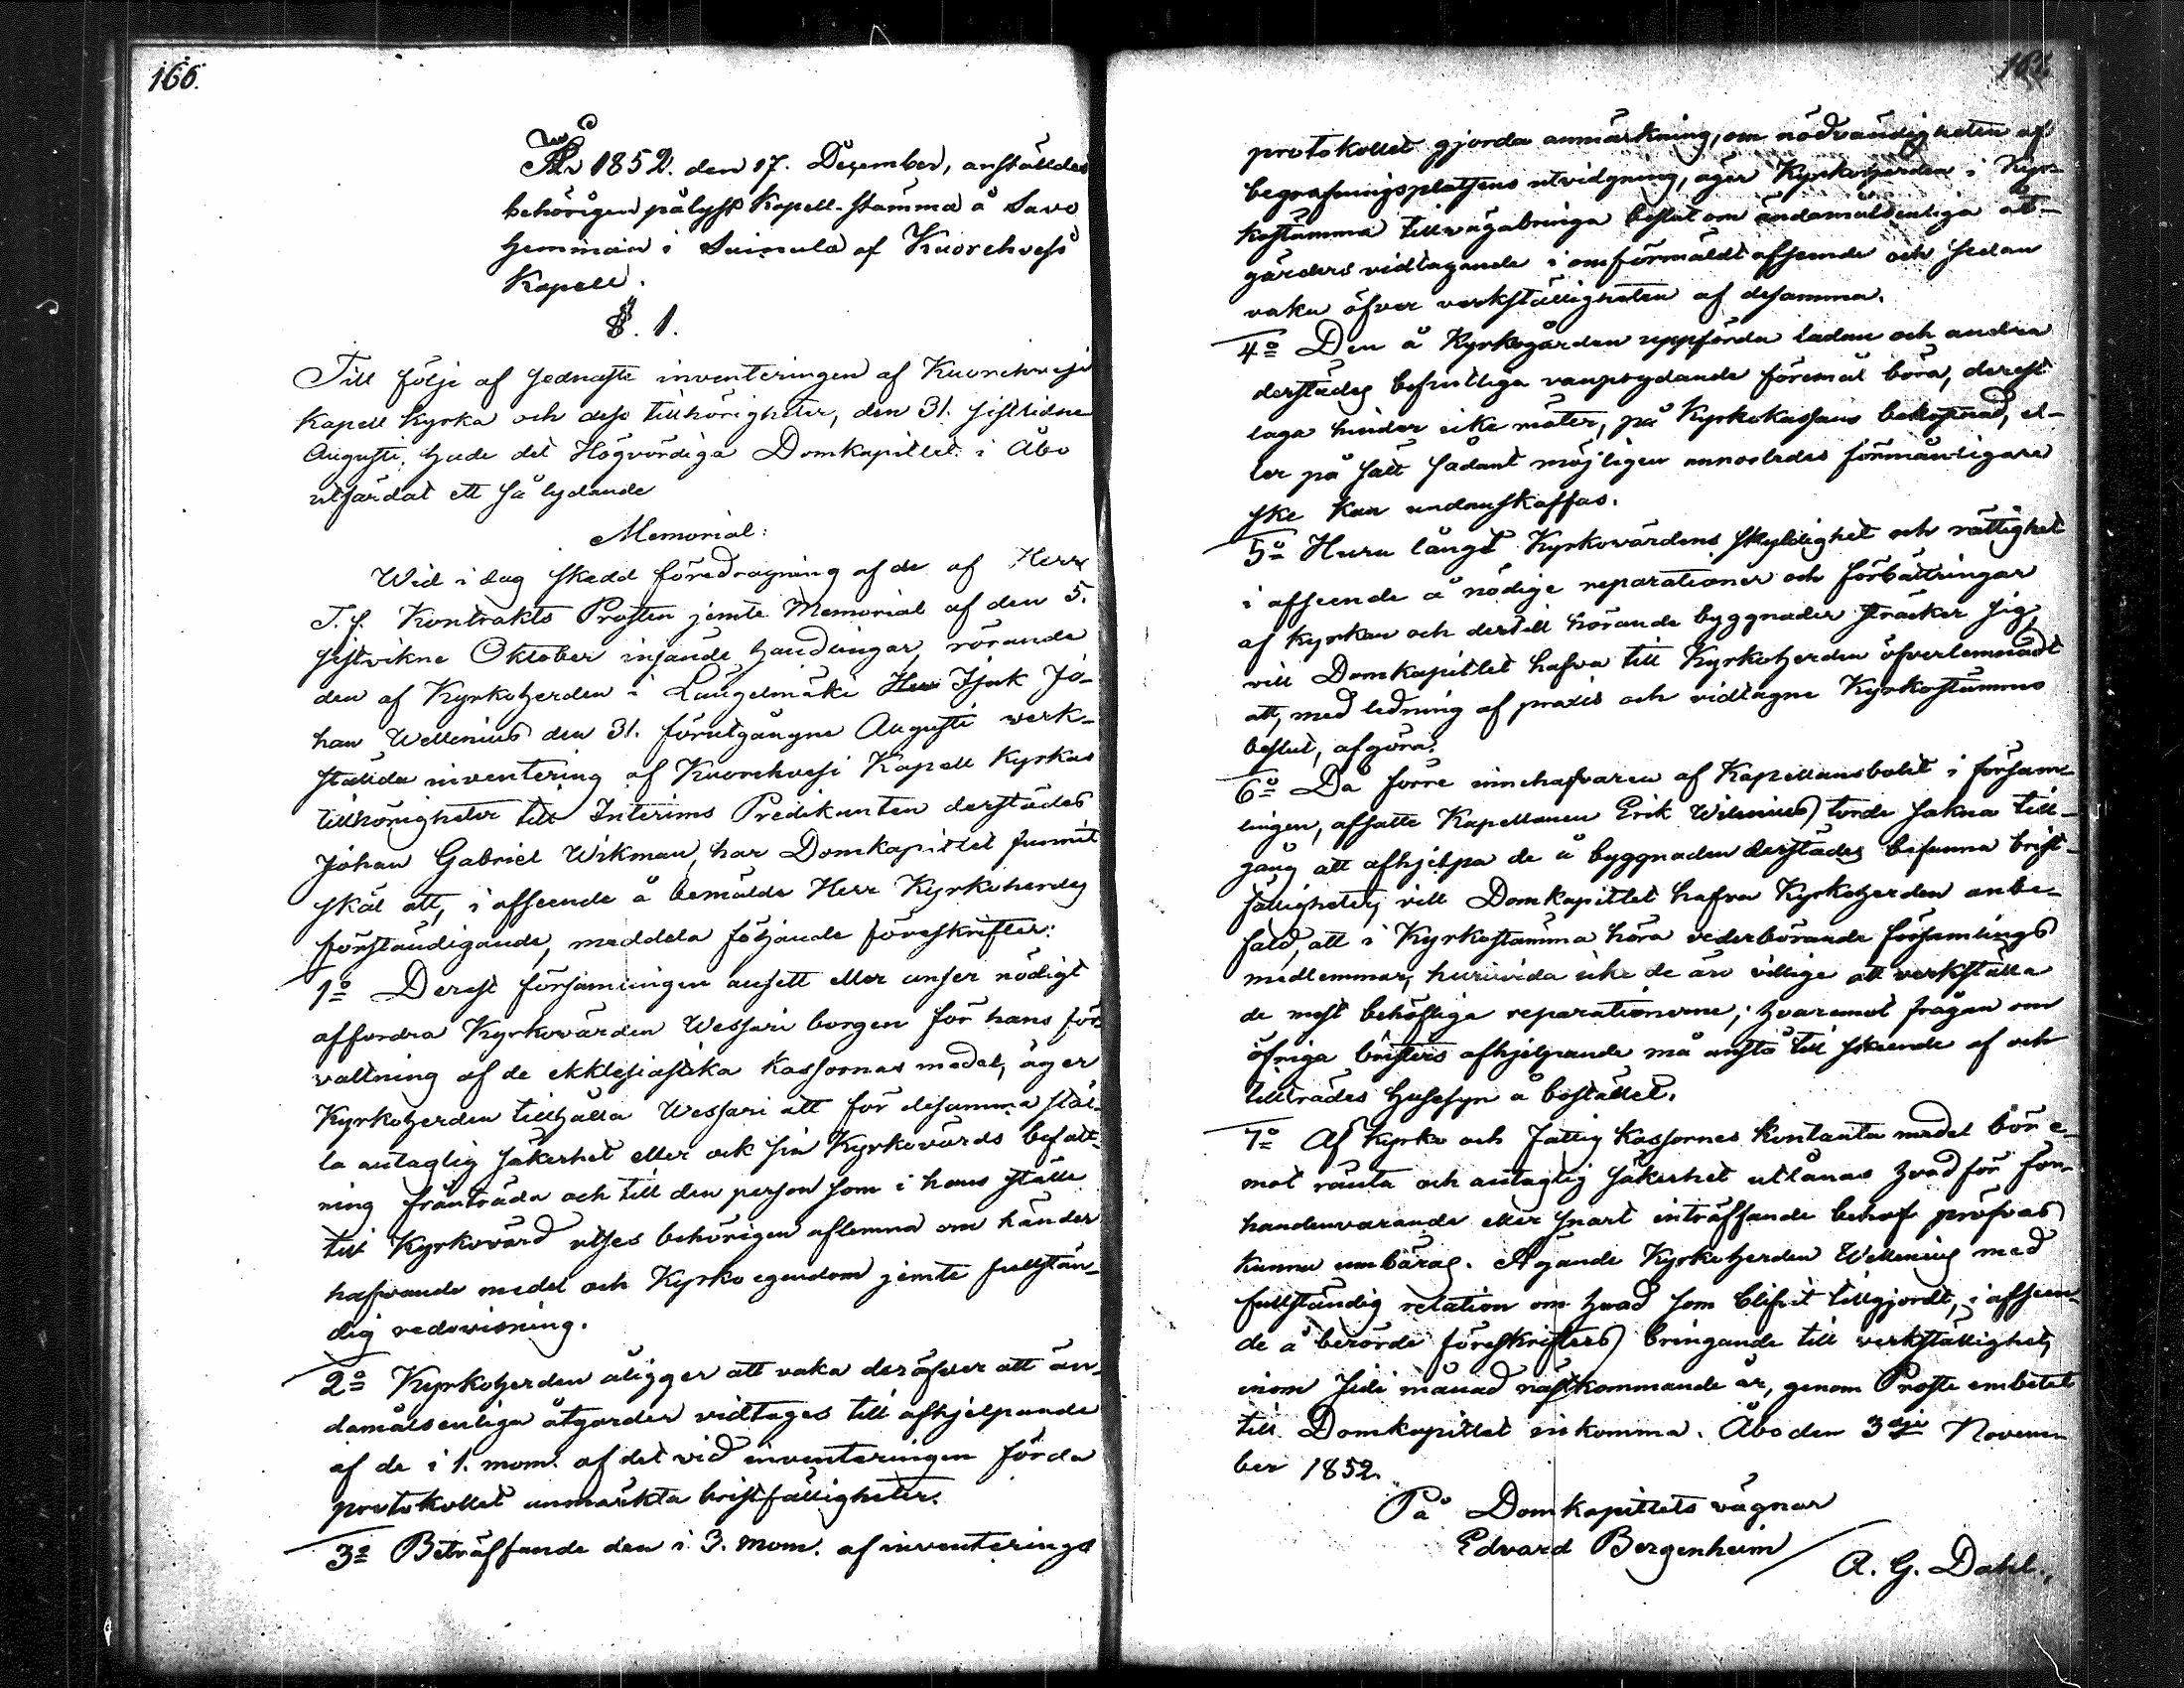 166.
År 1852. den 17. December, anställdes
behörigen pålyst Kapell-stämma å Savo
hemman i Suinula af Kuorehvesi
Kapell.
§. 1.
Till följe af sednaste inventeringen af Kuorehvesi
Kapell Kyrka och dess tillhörigheter, den 31. sistlidne
Augusti, hade det Högvördiga Domkapitlet i Åbo
utfärdat ett så lydande
Memorial:
Wid i dag skedd föredragning af de af Herr
T. f. Kontrakts Prosten jemte Memorial af den 5.
sistvikne Oktober insände handlingar, rörande
den af Kyrkoherden i Längelmäki Herr Isak Jo-
han Wellenius den 31. förutgångne Augusti werk-
ställda inventering af Kuorehvesi Kapell Kyrkas
tillhörigheter till Interims Predikanten derstädes
Johan Gabriel Wikman, har Domkapitlet funnit
skäl att, i afseende å bemälde Herr Kyrkoherdes
förständigande, meddela följande föreskrifter:
1o Derest församlingen ansett eller anser nödigt
affordra Kyrkovärden Wessari borgen för hans för
valtning af de ekklesiastika Kassornas medel, äger
Kyrkoherden tillhålla Wessari att för desamma stäl-
la antaglig säkerhet eller ock sin Kyrkovärds befatt-
ning frånträda och till den person som i hans ställe
till Kyrkovärd utses behörigen aflemna om händer
hafvande medel och Kyrko egendom jemte fullstän-
dig redovisning.
2o Kyrkoherden åligger att vaka deröfver att än-
damålsenliga åtgärder vidtages till afhjelpande
af de i 1. mom. af det vid inventeringen förda
protokollet anmärkta bristfälligheter.
3o Beträffande den i 3. mom. af inventerings
167.
protokollet gjorda anmärkning, om nödvändigheten af
begrafningsplatsens utvidgning, äger Kyrkoherden i Kyr-
kostämma tillvägabringa beslut om ändamålsenliga åt-
gärders vidtagande i omförmäldt afseende och sedan
vaka öfver verkställigheten af desamma.
4o Den å Kyrkogården uppförda ladan och andra
derstädes befintliga vanprydande föremål böra, derest
laga hinder icke möter, på Kyrkokassans bekostnad, el-
ler på sätt sådant möjligen annorledes förmånligare
ske kan undanskaffas.
5o Huru långt Kyrkovärdens skyldighet och rättighet
i afseende å nödige reparationer och förbättringar
af Kyrkan och dertill hörande byggnader sträcker sig,
vill Domkapitlet hafva till Kyrkoherden öfverlemnadt
att, med ledning af praxis och vidtagne Kyrkostämmo
beslut, afgöra.
6o Då förre innehafvaren af Kapellansbolet i försam-
lingen, afsatte Kapellanen Erik Wilenius torde sakna till-
gång att afhjelpa de å byggnaden derstädes befunna brist-
fälligheter, vill Domkapitlet hafva Kyrkoherden anbe-
fald, att i Kyrkostämma höra vederbörande församlings
medlemmar, huruvida icke de äro villige att verkställa
de mest behöfliga reparationerne; hvaremot frågan om
öfriga bristers afhjelpande må anstå till skeende af och
tillträdes husesyn å bostället.
7o Af Kyrko och Fattig Kassornes kontanta medel bör e-
mot ränta och antaglig säkerhet utlånas hvad för för-
handenvarande eller snart inträffande behof pröfvas
kunna umbäras. Ägande Kyrkoherden Wellenius med
fullständig relation om hvad som blifvit tillgjordt, i afseen-
de å berörde föreskrifters bringande till verkställighet,
inom Juli månad nästkommande år, genom Proste embetet
till Domkapitlet inkomma. Åbo den 3dje Novem-
ber 1852.
På Domkapitlets vägnar
Edvard Bergenheim
A. G. Dahl.